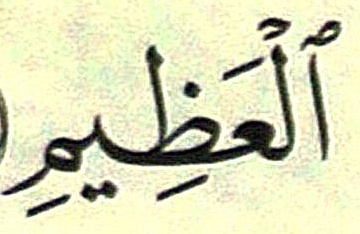 ٱلْعَظِيمِ